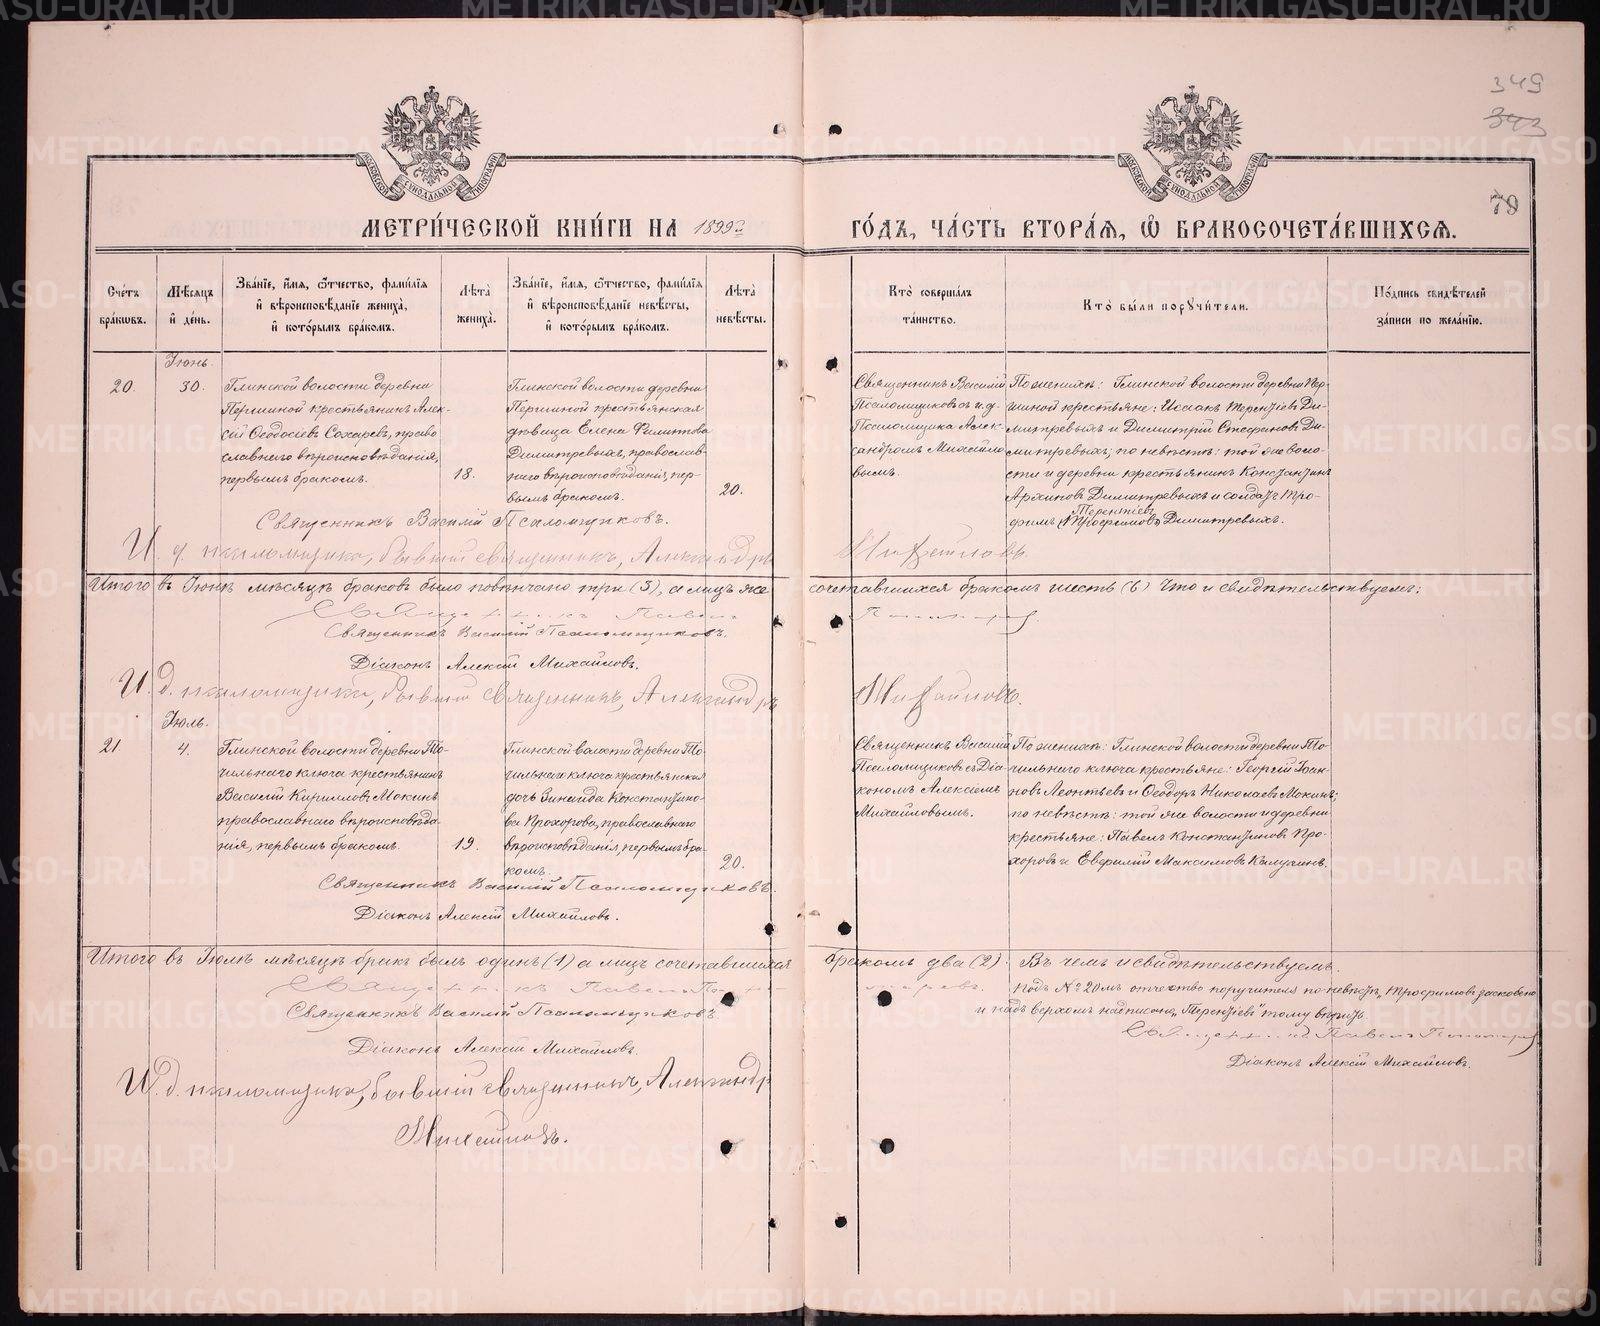 349
343
79
МОСКОВСКОЙ СѴНОДАЛЬНОЙ ТИПОГРАФІИ
МОСКОВСКОЙ СѴНОДАЛЬНОЙ ТИПОГРАФІИ
МЕТРИ́ЧЕСКОЙ КНИ́ГИ НА 1899й
ГО́ДЪ, ЧА́СТЬ ВТОРА́Я, Ѽ БРАКОСОЧЕТА́ВШИХСЯ.
Сче́тъ бра́ковъ.
Мѣ́сяцъ и҆ де́нь.
Зва́нїе, и҆́мя, ѻ҆́тчество, фами́лїя
и҆ вѣроисповѣ́данїе жениха̀,
и҆ кото́рымъ бра́комъ.
Лѣ́та жениха̀.
Зва́нїе, и҆́мя, ѻ҆́тчество, фами́лїя
и҆ вѣроисповѣ́данїе невѣ́сты,
и҆ кото́рымъ бра́комъ.
Лѣ́та невѣ́сты.
Кто̀ соверша́лъ
та́инство.
Кто̀ бы́ли порꙋчи́тели.
По́дпись свидѣ́телей
за́писи по жела́нїю.
Іюнь.
20.
30.
Глинской волости деревни
Першиной крестьянинъ Алек-
сій Ѳеодосіевъ Сохаревъ, право
славнаго вѣроисповѣданія,
первымъ бракомъ.
18.
Глинской волости деревни
Першиной крестьянская
дѣвица Елена Филиппова
Димитревыхъ, православ-
наго вѣроисповѣданія, пер-
вымъ бракомъ.
20.
Священникъ Василій
Псаломщиковъ съ и. д.
Псаломщика Алек-
сандромъ Михайло
вымъ.
По женихѣ: Глинской волости деревни Пер-
шиной крестьяне: Исаакъ Терентіевъ Ди-
митревыхъ и Димитрій Стефановъ Ди-
митревыхъ; по невѣстѣ: той же воло-
сти и деревни крестьянинъ Константинъ
Архиповъ Димитревыхъ и солдатъ Тро-
Терентіевъ
фимъ (Трофимовъ) Димитревыхъ.
Священникъ Василій Псаломщиковъ.
И. д. псаломщика, бывшій священникъ, Александръ Михайловъ.
Итого въ Іюнѣ мѣсяцѣ браковъ было повѣнчано три (3), а лицъ же сочетавшихся бракомъ шесть (6) Что и свидѣтельствуемъ:
Священникъ Павелъ
Священникъ Василій Псаломщиковъ.
Діаконъ Алексій Михайловъ.
И. д. псаломщика, бывшій священникъ, Александръ Михайловъ.
Іюль.
21
4.
Глинской волости деревни То-
чильнаго ключа крестьянинъ
Василій Кирилловъ Мокинъ
православнаго вѣроисповѣда-
нія, первымъ бракомъ.
19.
Глинской волости деревни То-
чильнаго ключа крестьянская
дочь Зинаида Константино-
ва Прохорова, православнаго
вѣроисповѣданія, первымъ бра-
комъ.
20.
Священникъ Василій
Псаломщиковъ съ Діа-
кономъ Алексіемъ
Михайловымъ.
По женихѣ: Глинской волости деревни То
чильнаго ключа крестьяне: Георгій Іоан-
новъ Леонтьевъ и Ѳеодоръ Николаевъ Мокинъ;
по невѣстѣ: той же волости и деревни
крестьяне: Павелъ Константиновъ Про-
хоровъ и Еверилій Максимовъ Калугинъ.
Священникъ Василій Псаломщиковъ.
Діаконъ Алексій Михайловъ.
Итого въ Іюлѣ мѣсяцѣ бракъ былъ одинъ (1) а лицъ сочетавшихся бракомъ два (2). Въ чемъ и свидѣтельствуемъ.
Священникъ Павелъ
Священникъ Василій Псаломщиковъ
Діаконъ Алексій Михайловъ.
И. д. псаломщика, бывшій священникъ, Александръ
Михайловъ.
Подъ № 20 мъ отчество поручителя по невѣстѣ „Трофимовъ“ заскоблено
и надъ верхомъ надписано „Терентіевъ“ тому вѣрить.
Священникъ Павелъ
Діаконъ Алексій Михайловъ.
METRIKI.GASO-URAL.RU